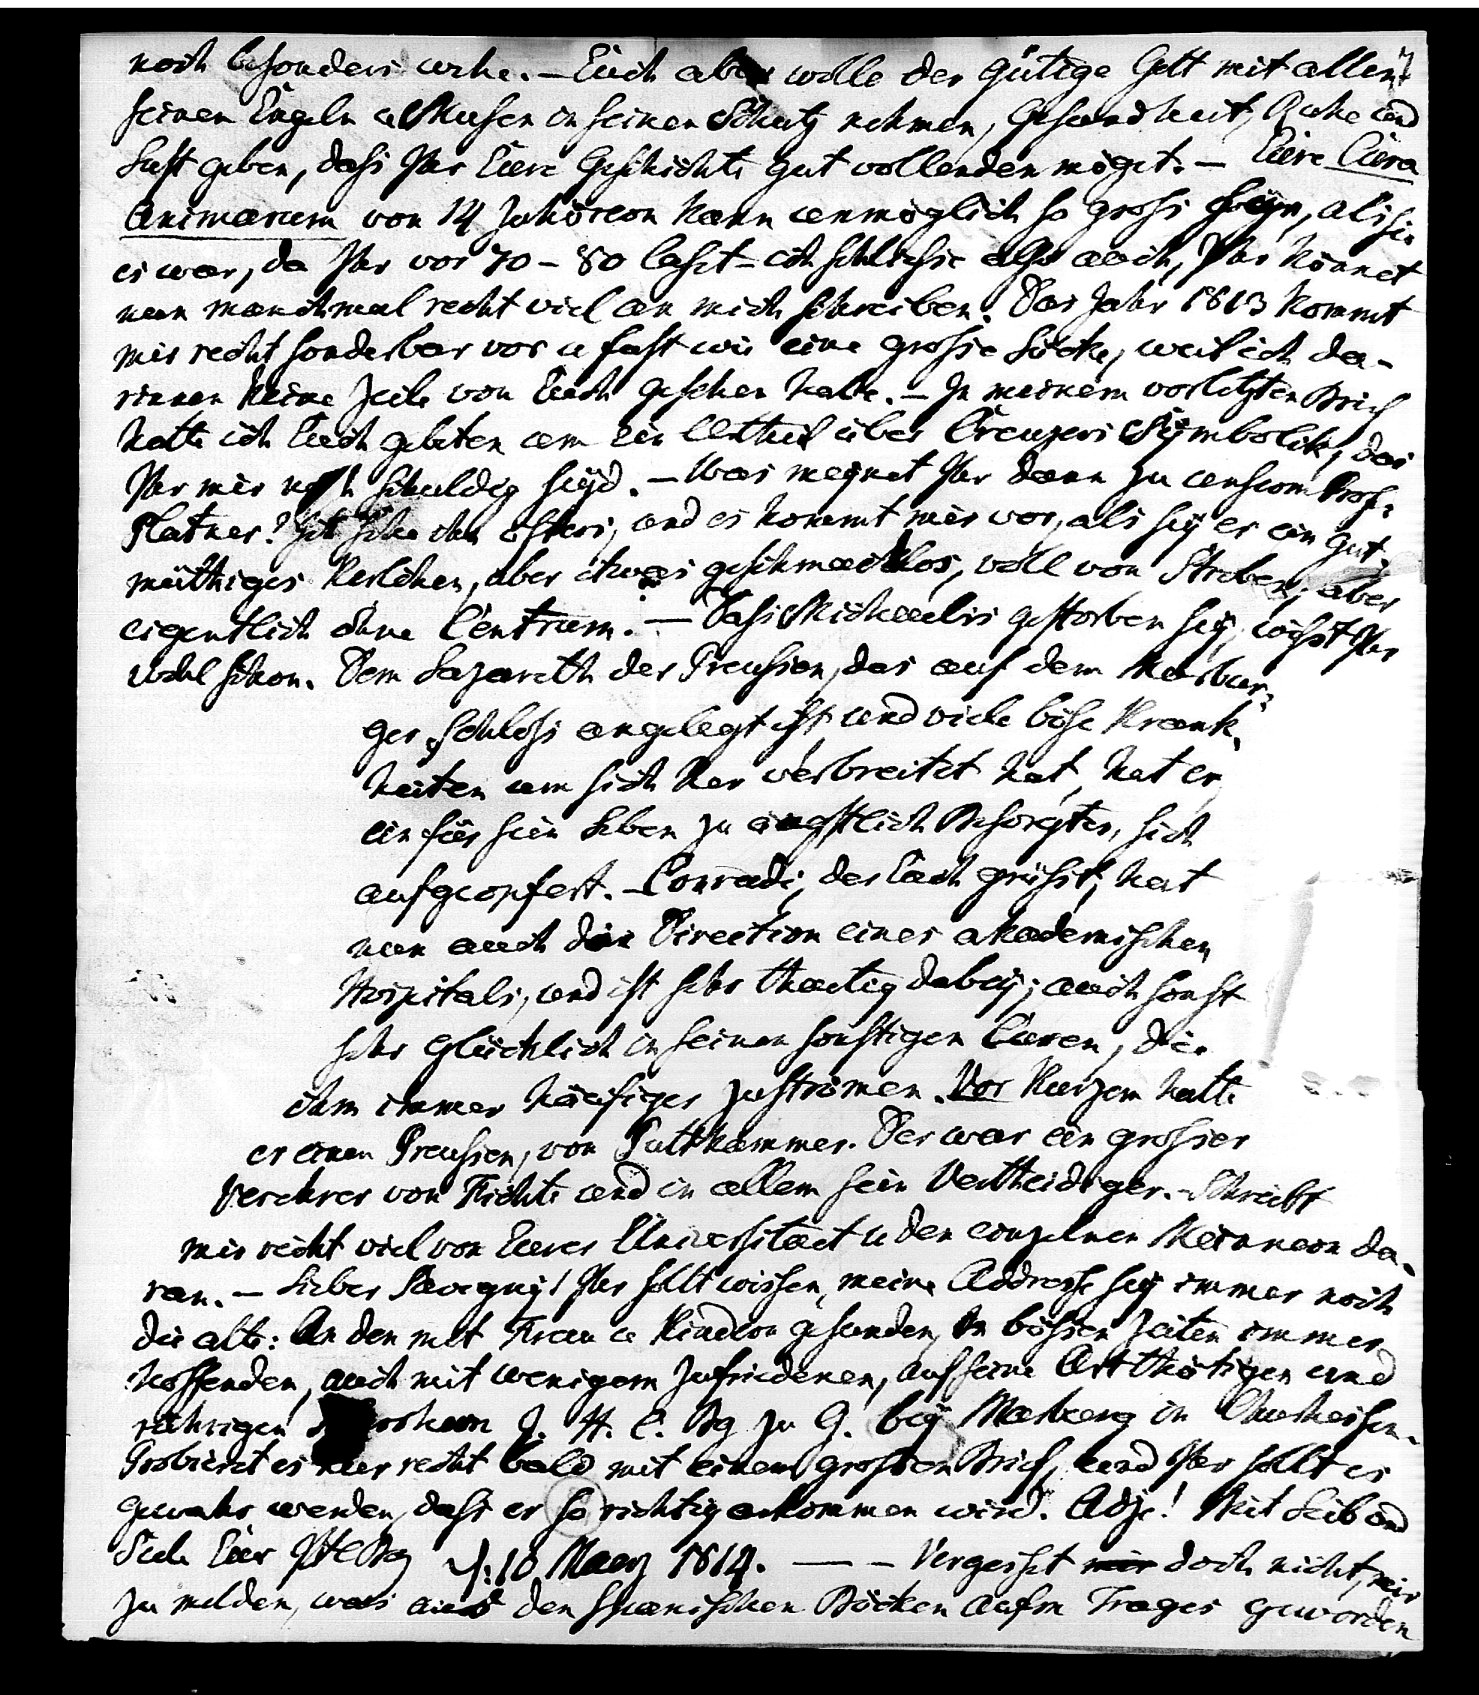 noch besonders wehe. – Euch aber wolle der gütige Gott mit allen
seinen Engeln u Musen in seinen Schutz nehmen, Gesundheit, Ruhe und
Lust geben, dass Ihr Euere Geschichte gut vollenden möget. – Euere Cura
animarum von 14 Zuhörern kann unmöglich so gross seyn, als sie
es war, da Ihr vor 70 – 80 laset – ich schliesse also auch, Ihr könnet
nun manchmal recht viel an mich schreiben. Das Jahr 1813 kommt
mir recht sonderbar vor u fast wie eine grosse Lücke, weil ich da-
rinnen keine Zeile von Euch gesehen habe. – In meinem vorletzten Brief
hatte ich Euch gebeten um ein Urtheil über Creuzers Symbolik, das
Ihr mir noch schuldig seyd. – Was meynet Ihr dann zu unserm Prof.
Platner? Ich sehe ihn öfters, und es kommt mir vor, als sey er ein gut-
müthiges Kerlchen, aber etwas geschmacklos, voll von Streben, aber
eigentlich ohne Centrum. – Dass Michaelis gestorben sey, wisst Ihr
wohl schon. Dem Lazareth der Preussen, das auf dem Marbur-
ger Schloss angelegt ist, und viele böse Krank-
heiten um sich her verbreitet hat, hat er
ein für sein Leben zu ängstlich Besorgter, sich
aufgeopfert. – Conradi, der Euch grüsst, hat
nun auch die Direction eines akademischen
Hospitals, und ist sehr thaetig dabey; auch sonst
sehr glücklich in seinen sonstigen Curen, die
ihm immer häufiger zuströmen. Vor Kurzem hatte
er einen Preussen, von Puttkammer. Der war ein grosser
Verehrer von Fichte und in allem sein Vertheidiger. – Schreibt
mir recht viel von Eurer Universitaet u den einzelnen Männern da-
ran. – Lieber Savigny! Ihr sollt wissen, meine Addresse sey immer noch
die alte: An den mit Frau u Kindern gesunden, in bösen Zeiten immer
hoffenden, auch mit wenigem zufriedenen, auf seine Art thätigen und
rührigen J. H. C. Bg zu G. bey Marburg in Oberhessen.
Probieret es nur recht bald mit einem grossen Brief, und Ihr sollt es
gewahr werden, dass er so richtig ankommen wird. Adje! Mit Leib und
Seele Euer JHCBg 10 Maerz 1814. – – Vergesset doch nicht, mir
zu melden, was aus den spanischen Böcken aufm Trages geworden